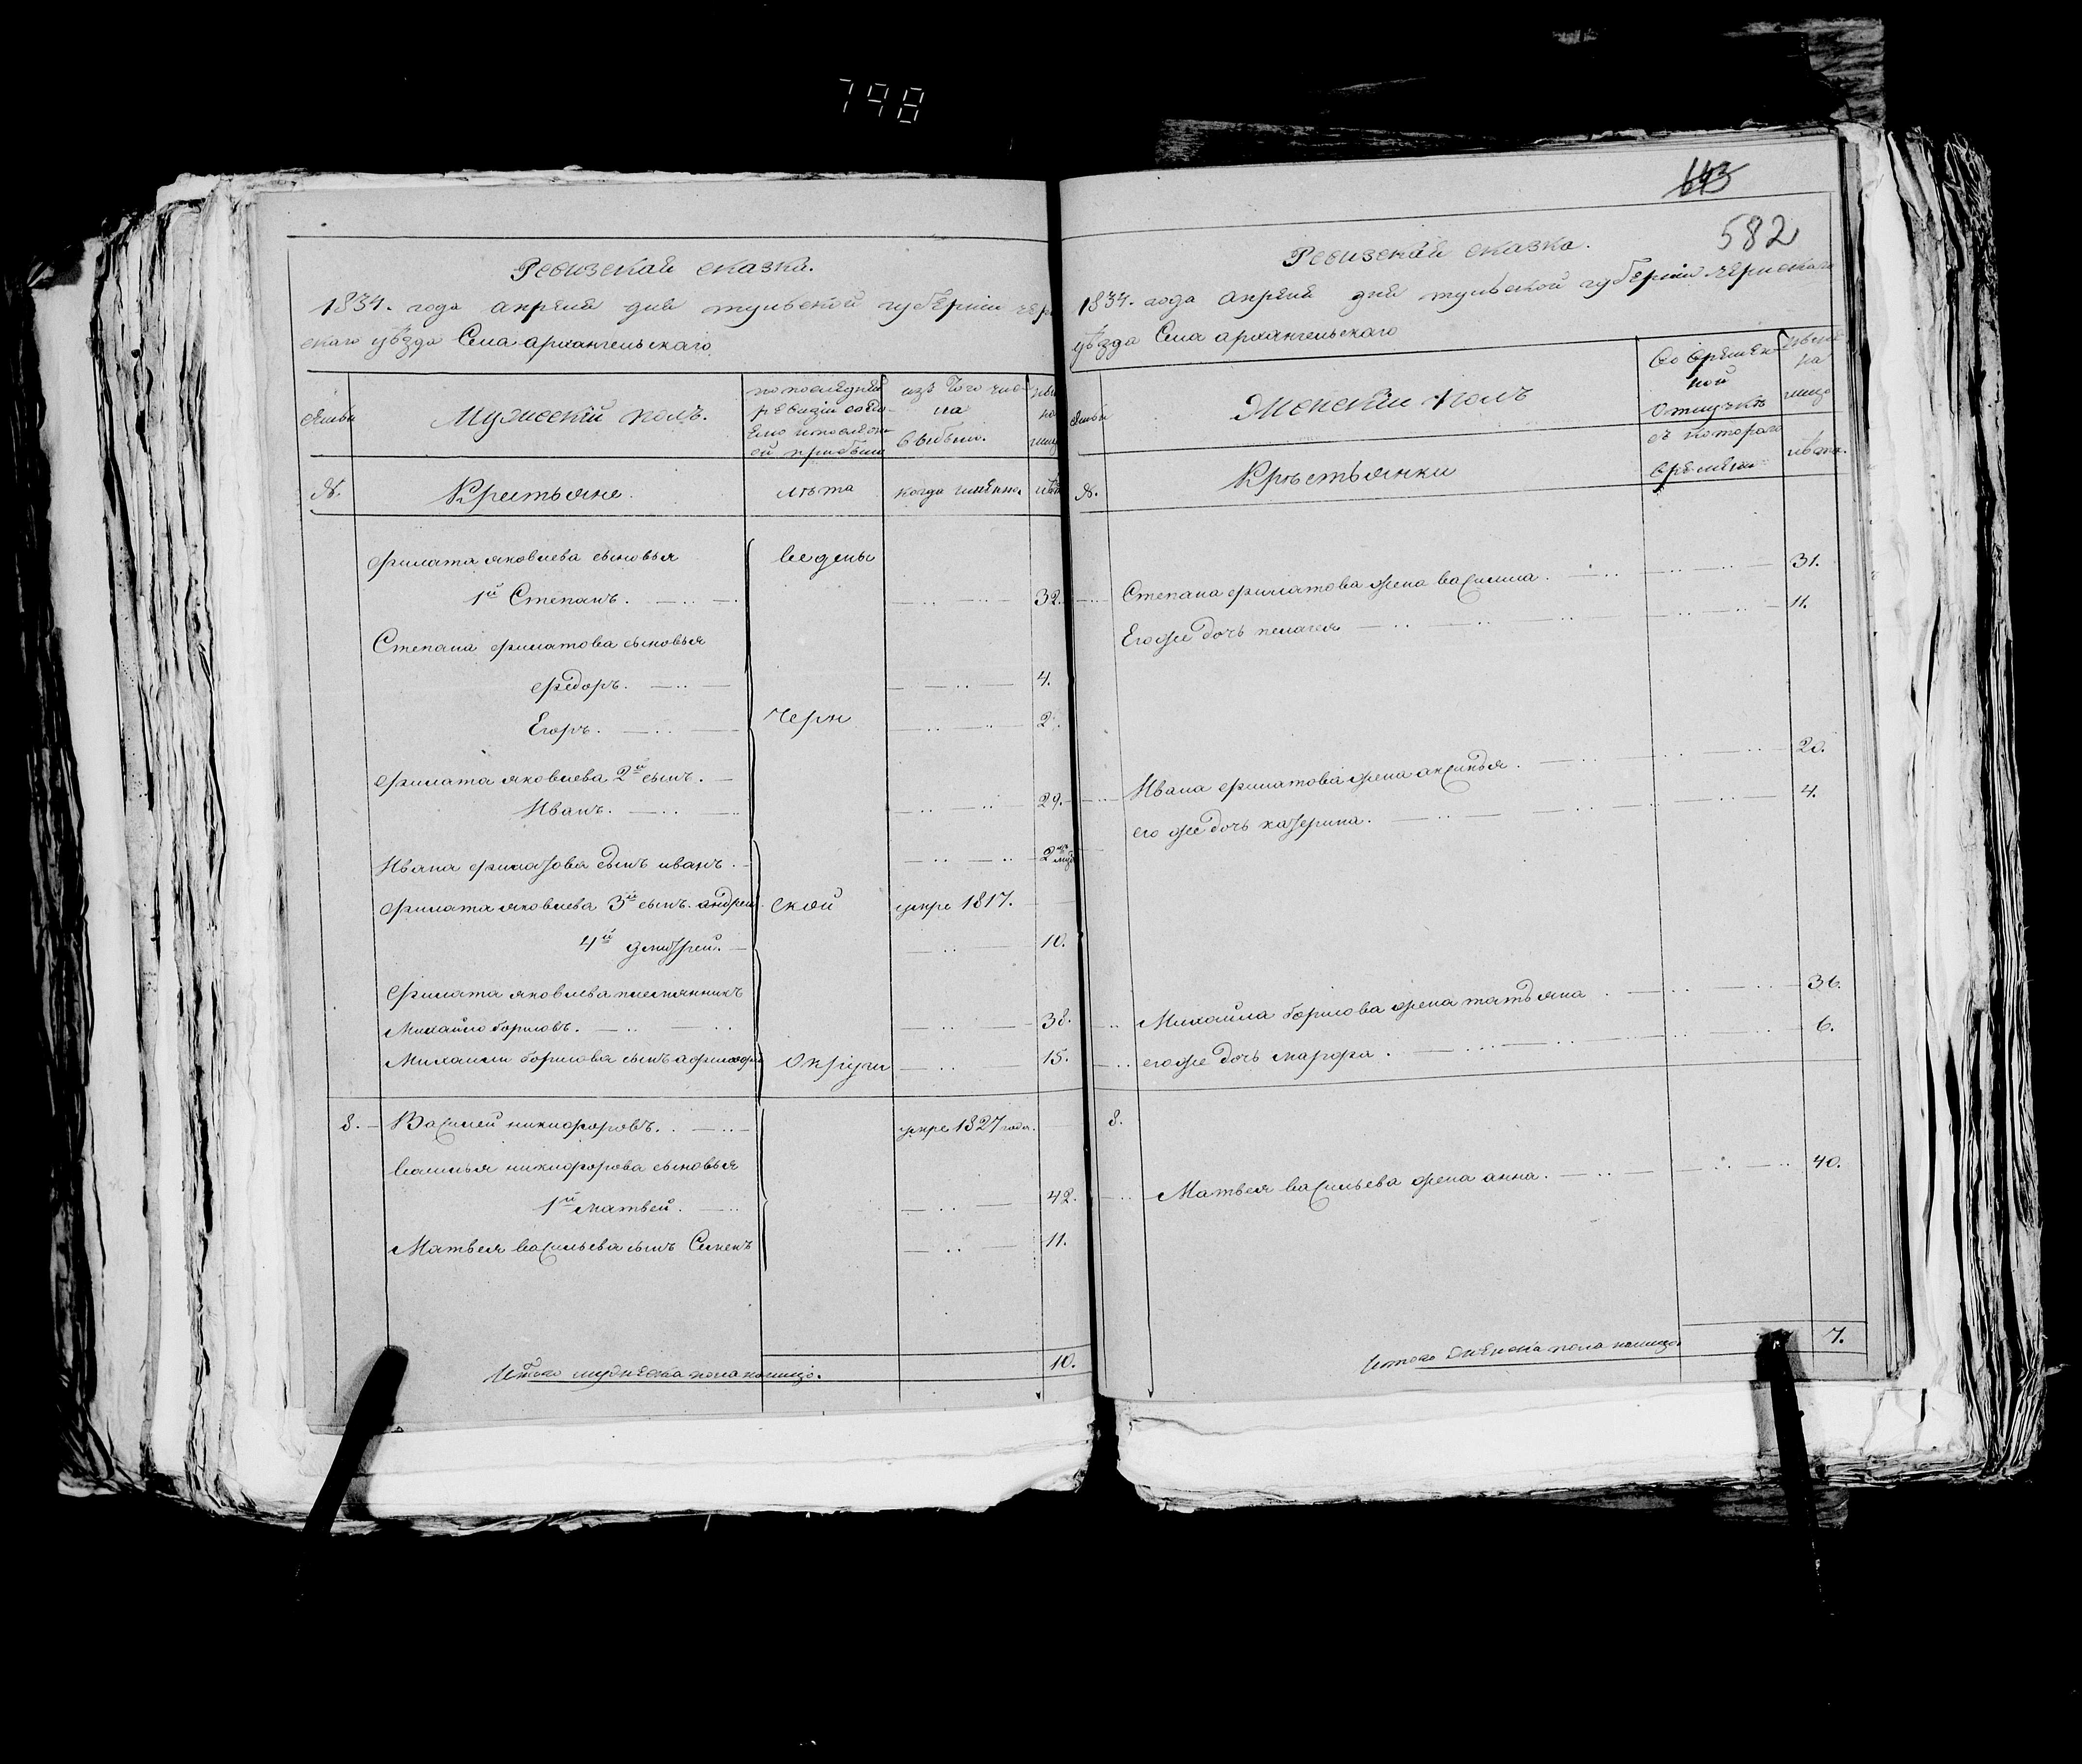 798
Ревизская сказка.
1834. года апреля дня тульской губернии чер
скаго уѣзда Села архангельскаго
Мужескій полъ.
по последней
ревизіи состо
яло и после он
ой прибыли
изъ того чис
ла
выбыло.
№.
Крестьяне.
лѣта
когда именно.
филата яковлева сыновья
ведены
1й Степанъ.
32.
Степана филатова сыновья
федоръ.
4.
Егоръ.
черн
2.
филата яковлева 2й сынъ.
Иванъ.
29.
Ивана филатова сынъ иванъ.
2
филата яковлева 3й сынъ андрей
ской
умре 1817.
4й дмитрей.
10.
филата яковлева племянникъ
Михайло борисовъ.
38.
Михаилы борисова сынъ
округи
15.
8.
Василей никифоровъ.
умре 1827 года.
василья никифорова сыновья
1й матвей.
42.
Матвея васильева сынъ Семенъ
11.
Итого мужеска пола налицо.
10.
643
582
Ревизская сказка.
1834. года апреля дня тульской губерніи чернскаго
уѣзда Села архангельскаго
Женскій полъ
Во времен
ной
отлучкѣ
на
лицо
№.
Крестьянки
съ котораго
времени
лѣта.
Степана филатова жена василиса.
31.
Его же дочь пелагея
11.
Ивана филатова жена аксинья.
20.
его же дочь катерина.
4.
Михайла борисова жена татьяна
36.
его же дочь марфа.
6.
8.
Матвея васильева жена анна.
40.
Итого женска пола налицо
7.